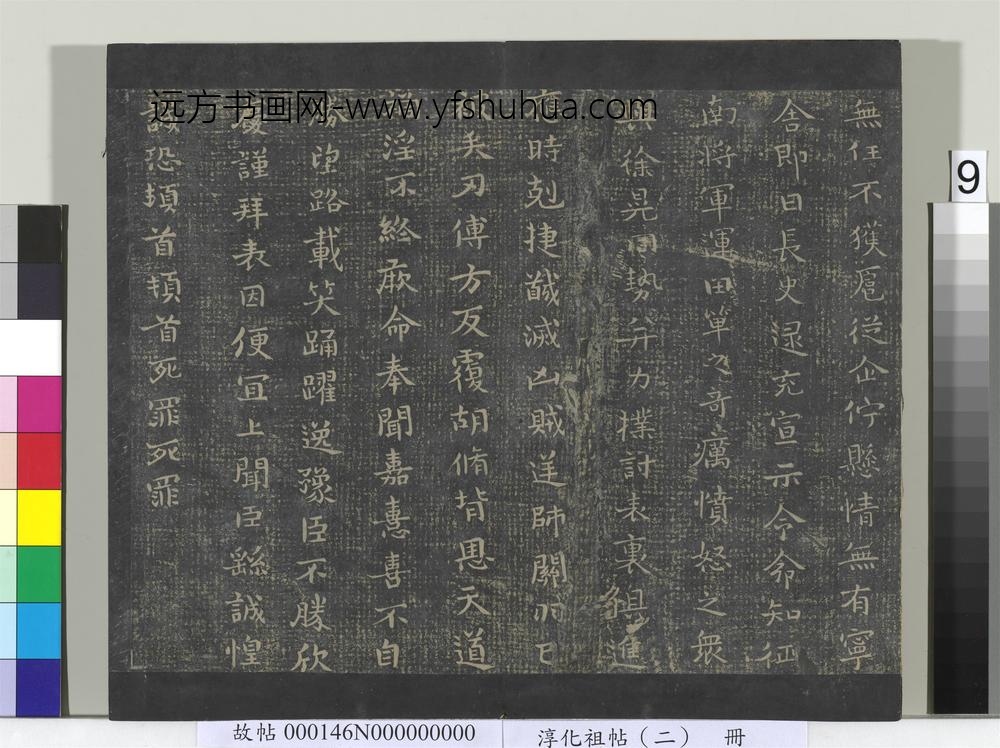 無任不獲扈從企佇懸情無有寧
舍即日長史逯充宣示令命知征
南將軍運田單之奇癘憤怒之眾
徐晃同勢并力撲討表裏俱進
應時剋捷馘滅凶賊逆帥關羽已
矢刃傅方反覆胡脩背恩天道
淫不終厥命奉聞嘉憙喜不自
勝望路載笑踊躍逆豫臣不勝欣
慶謹拜表因便宜上聞臣繇誠惶
誠恐頓首頓首死罪死罪
远方书画网-www.yfshuhua.com
9
故帖 000146N000000000
淳化祖帖(二) 冊